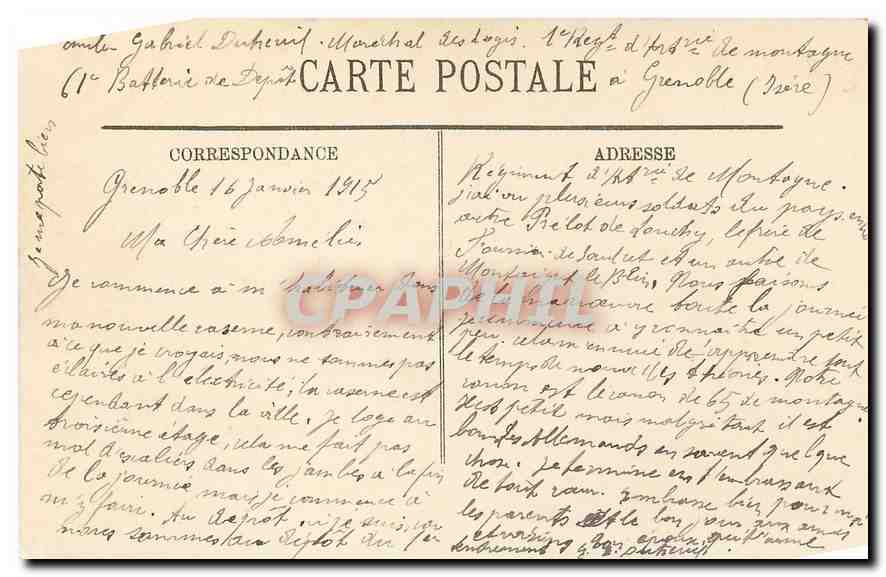 Gabriel Dutheuil. Maréchal des logis. 1er Regt d'Artrie de montagne
61e Batterie de Depôt à Grenoble (Isère)
CARTE POSTALE
Je me porte bien
CORRESPONDANCE
Grenoble 16 Janvier 1915
Ma Chère Amélie
Je commence à m'habituer dans
ma nouvelle caserne, contrairement
à ce que je croyais, nous ne sommes pas
éclairés à l'electricité; la caserne est
cependant dans la ville. Je loge au
troisième étage, cela me fait pas
mal d'escaliers dans les jambes à la fin
de la journée mais je commence à
m'y faire. Au depôt où je suis, car
nous sommes au dépôt du 1er
ADRESSE
Régiment d'Artrie de Montagne.
j'ai vu plusieurs soldats du pays, entre
autre Prélot de Louchy, le frère de
Fournier de Saulcet et un autre de
Monteignet le Blin. Nous faisons
de la manoeuvre toute la journée
je commence à y connaître un petit
peu, cela m'ennuie de rapprendre tout
le temps de nouvelles théories. Notre
canon est le canon de 65 de montagne
il est petit mais malgré tout il est
bon, les Allemands en savent quelque
chose. Je termine en t'embrassant
de tout coeur. Embrasse bien pour moi
les parents et le bonjour aux amis
et voisins. Ton époux qui t'aime
tendrement G. Dutheuil.
CPAPHIL